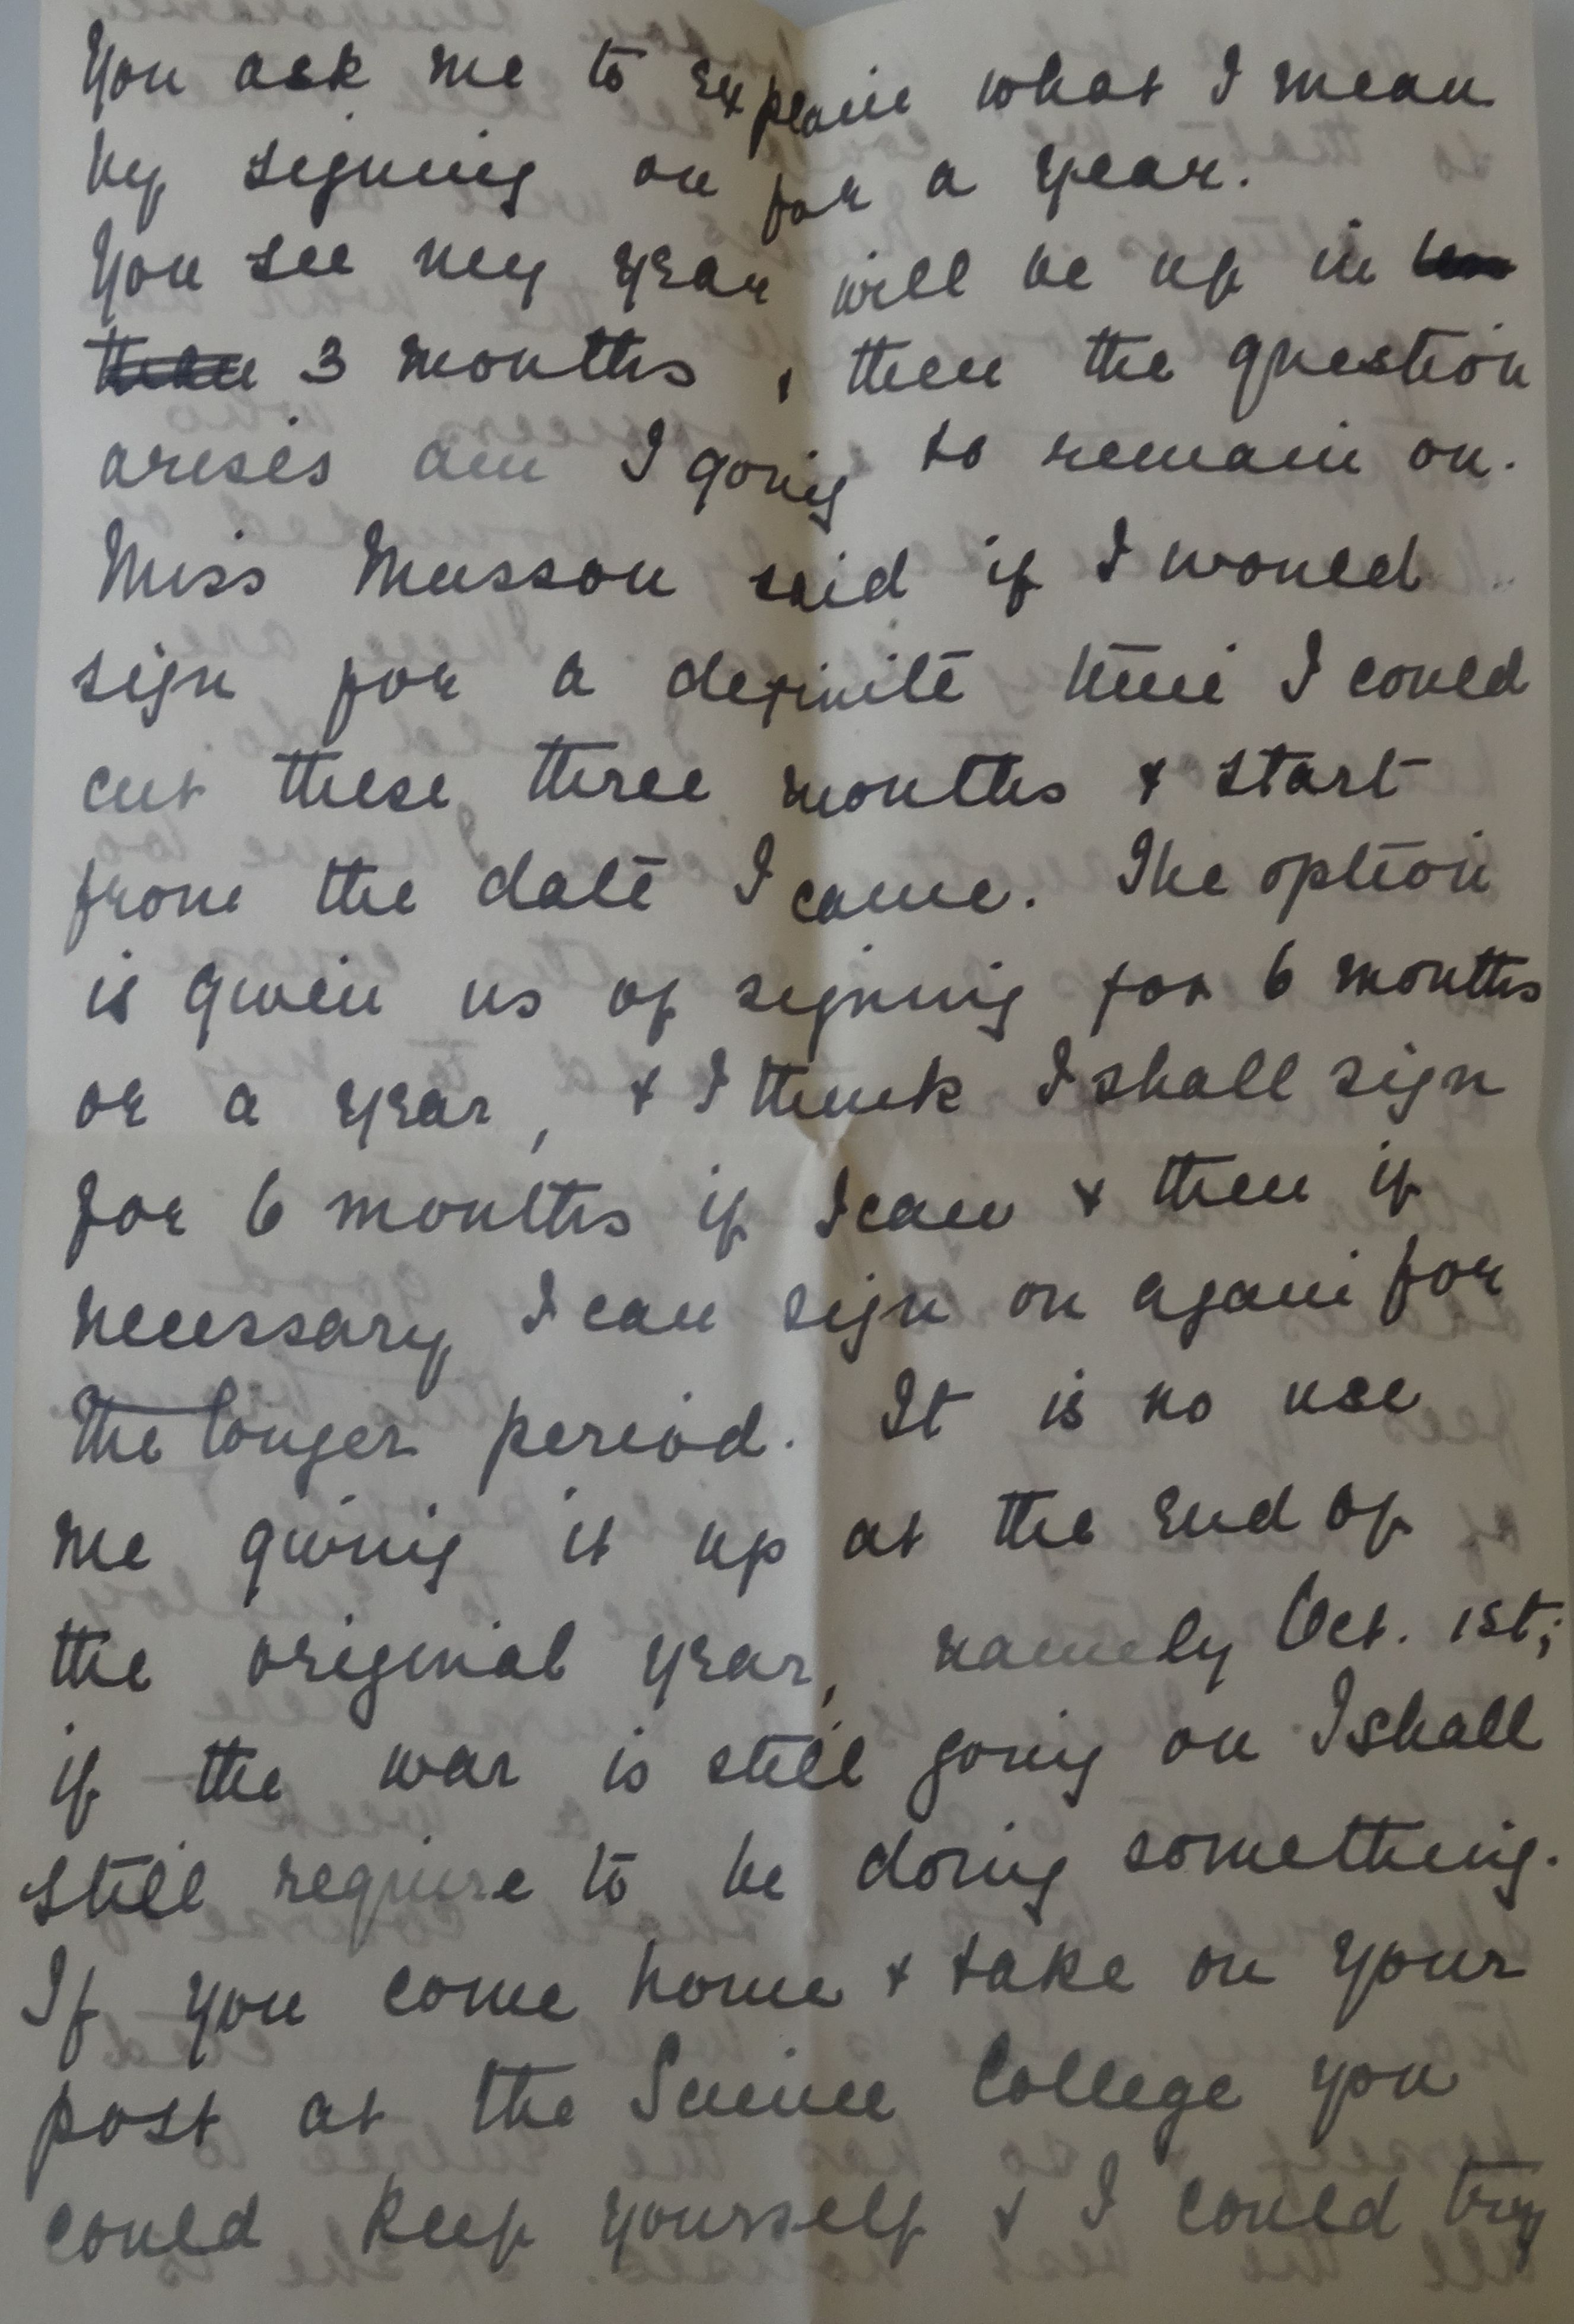 You ask me to explain what I mean
by signing on for a year.
You see my year will be up in less
than 3 months, then the question
arises am I going to remain on.
Miss Musson said if I would
sign for a definite time I could
cut these three months & start
from the date I came. The option
is given us of signing for 6 months
or a year, & I think I shall sign
for 6 months if I can & then if
necessary I can sign on again for
the longer period. It is no use
me giving it up at the end of
the original year, namely Oct. 1st;
if the war is still going on I shall
still require to be doing something.
If you come home & take on your
post at the Science College you
could keep yourself & I could try